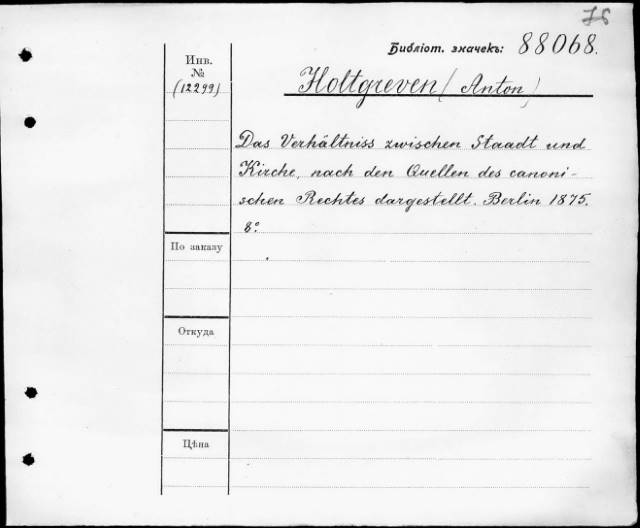 76
Библіот. значекъ: 88068.
Инв.
№
(12299)
Holtgreven (Anton)
Das Verhältniss zwischen Staadt und
Kirche, nach den Quellen des canoni-
schen Rechtes dargestellt. Berlin 1875.
8º.
По заказу
Откуда
Цѣна